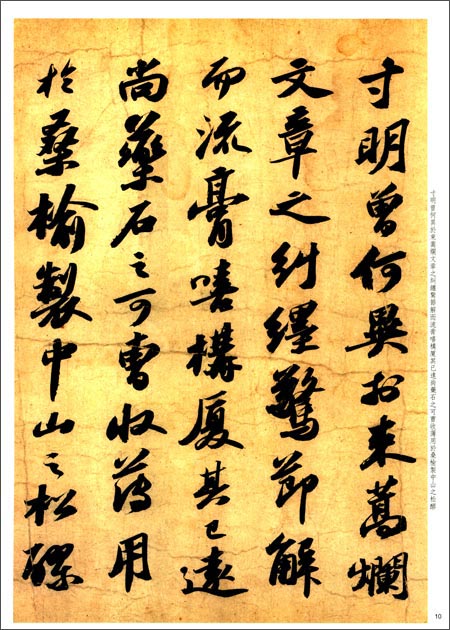 寸明曾何異於束蒿爛
文章之糾纆驚節解
而流膏嘻構厦其已遠
尚藥石之可曹收薄用
於桑榆製中山之松醪
寸明曾何異於束蒿爛文章之糾纆驚節解而流膏嘻構厦其已遠尚藥石之可曹收薄用於桑榆製中山之松醪
10